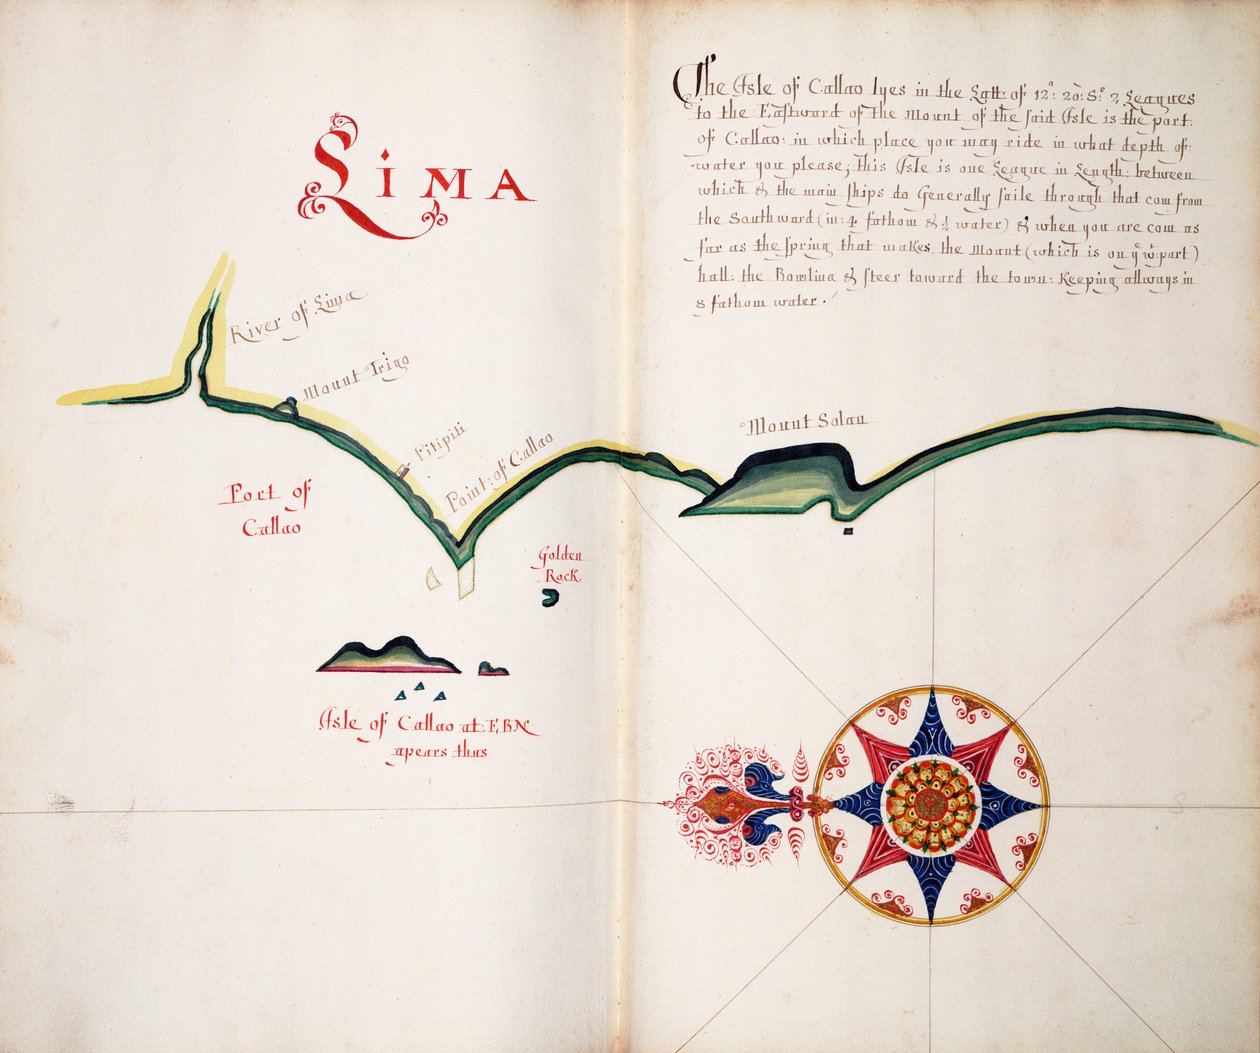 Lima
The Isle of Callao lyes in the Latt: of 12°: 20: S° 2 Leagues
to the Eastward of the Mount of the said Isle is the port
of Callao: in which place you may ride in what depth of
water you please; this Isle is one League in Length: between
which & the main ships do Generally saile through that com from
the Southward (in: 4 fathom & ½ water) & when you are com as
far as the spring that makes the Mount (which is on yᵉ wᵗ: part)
hall: the Bowlina & steer toward the town: Keeping allways in
8 fathom water.
River of Lima
Mount Trigo
Fitipiti
Point: of Callao
Mount Solan
Port of
Callao
Golden
Rock
Isle of Callao at: E, B N
apears thus